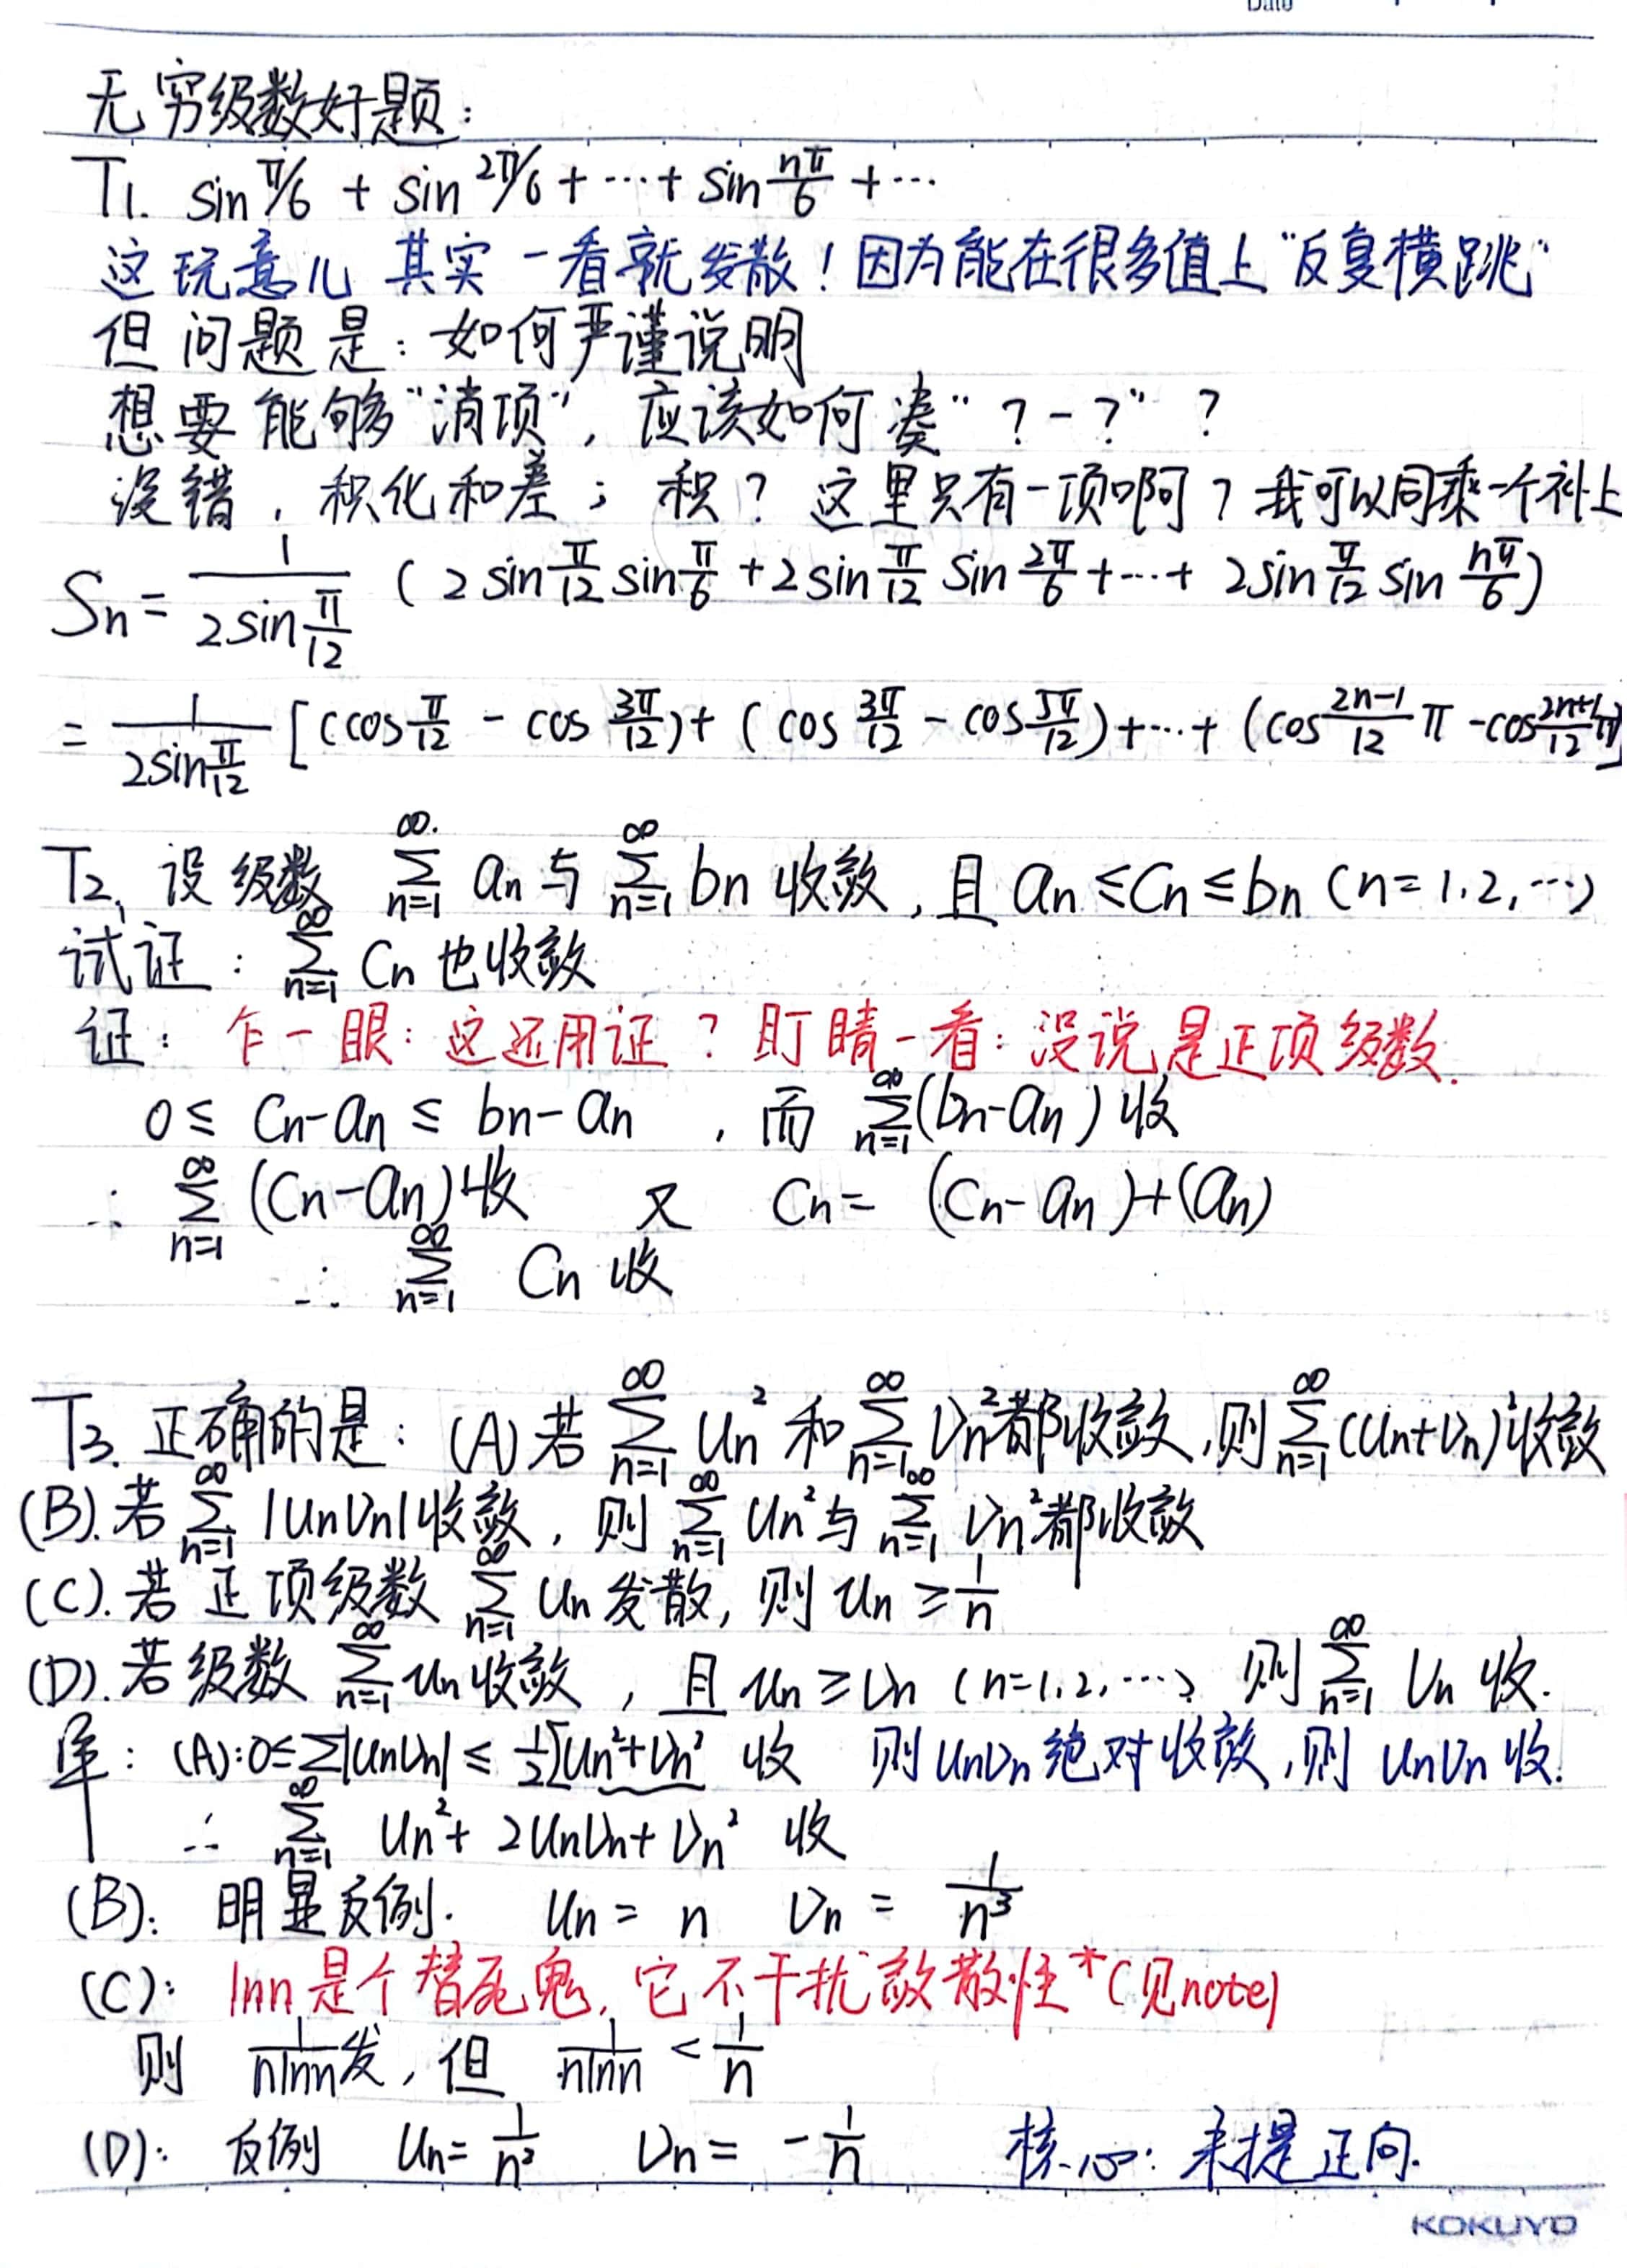 Date
无穷级数好题:
T1. sin π/6 + sin 2π/6 + ··· + sin nπ/6 + ···
这玩意儿 其实 一看就发散！因为能在很多值上“反复横跳”
但问题是：如何严谨说明
想要能够“消项”，应该如何凑“？-？”？
没错，积化和差；积？这里只有一项啊？我可以同乘一个补上
Sn = 1/(2sin π/12) (2sin π/12 sin π/6 + 2sin π/12 sin 2π/6 + ··· + 2sin π/12 sin nπ/6)
= 1/(2sin π/12) [(cos π/12 - cos 3π/12) + (cos 3π/12 - cos 5π/12) + ··· + (cos (2n-1)/12 π - cos (2n+1)/12 π)]
T2. 设级数 ∑_{n=1}^{∞} an 与 ∑_{n=1}^{∞} bn 收敛，且 an ≤ Cn ≤ bn (n=1,2,···)
试证：∑_{n=1}^{∞} Cn 也收敛
证：乍一眼：这还用证？盯睛一看：没说是正项级数.
0 ≤ Cn-an ≤ bn-an ，而 ∑_{n=1}^{∞} (bn-an) 收
∴ ∑_{n=1}^{∞} (Cn-an) 收 又 Cn = (Cn-an)+(an)
∴ ∑_{n=1}^{∞} Cn 收
T3. 正确的是：(A) 若 ∑_{n=1}^{∞} Un² 和 ∑_{n=1}^{∞} Vn² 都收敛，则 ∑_{n=1}^{∞} (Un+Vn)² 收敛
(B). 若 ∑_{n=1}^{∞} |UnVn| 收敛，则 ∑_{n=1}^{∞} Un² 与 ∑_{n=1}^{∞} Vn² 都收敛
(C). 若正项级数 ∑_{n=1}^{∞} Un 发散，则 Un ≥ 1/n
(D). 若级数 ∑_{n=1}^{∞} Un 收敛，且 Un ≥ Vn (n=1,2,···) 则 ∑_{n=1}^{∞} Vn 收.
(A): 0≤∑|UnVn| ≤ 1/2∑Un²+Vn² 收 则 UnVn 绝对收敛，则 UnVn 收.
∴ ∑_{n=1}^{∞} Un² + 2UnVn + Vn² 收
(B): 明显反例. Un = n Vn = 1/n³
(C): lnn 是个替死鬼，它不干扰敛散性*(见note)
则 1/(nlnn) 发，但 1/(nlnn) < 1/n
(D): 反例 Un = 1/n² Vn = -1/n 核心：未提正向.
KOKUYO